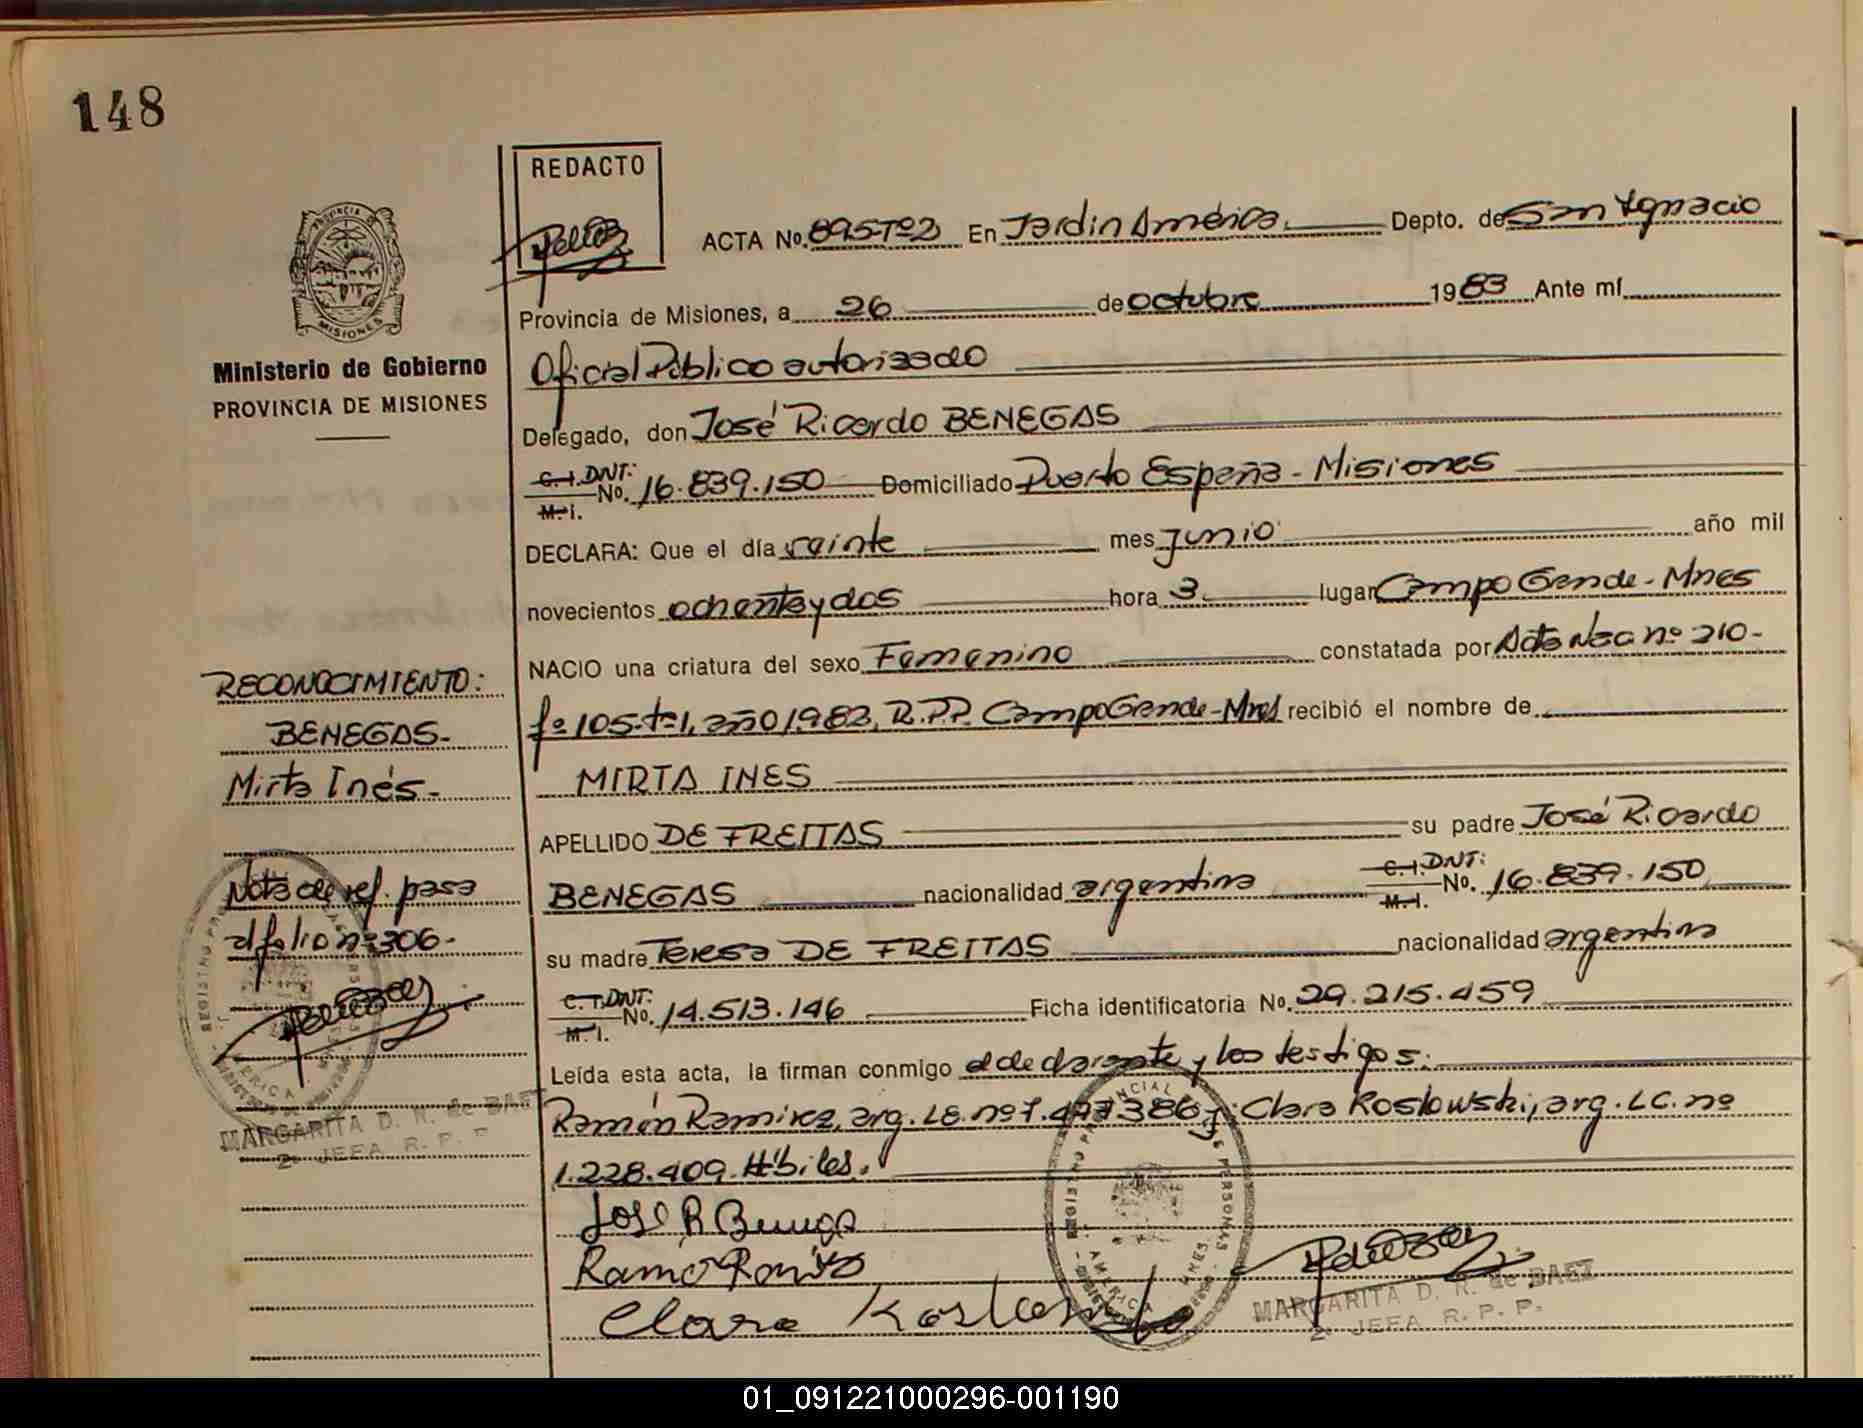 148
REDACTO
ACTA No. 895-Tº2 En Jardín América. Depto. de San Ignacio
Provincia de Misiones, a 26 de octubre 1983 Ante mí
PROVINCIA DE
MISIONES
Ministerio de Gobierno
PROVINCIA DE MISIONES
Oficial Público autorizado
Delegado, don José Ricardo BENEGAS
C.I. DNT: M.I. No. 16.839.150 Domiciliado Puerto España - Misiones
DECLARA: Que el día veinte mes junio año mil
novecientos ochenta y dos hora 3. lugar Campo Grande - Mnes
NACIO una criatura del sexo Femenino constatada por Acta Nac nº 210-
fº 105-tº1, año 1982, R.P.P. Campo Grande-Mnes recibió el nombre de
MIRTA INES
APELLIDO DE FREITAS su padre José Ricardo
BENEGAS nacionalidad argentina C.I. DNT: M.I. No. 16.839.150
su madre Teresa DE FREITAS nacionalidad argentina
C.I. DNT: M.I. No. 14.513.146 Ficha identificatoria No. 29.215.459
Leída esta acta, la firman conmigo el declarante y los testigos:
Ramón Ramirez, arg. LE. nº 7.477386 y: Clara Koslowski, arg. LC. nº
1.228.409. Hábiles.
José R Benega
Ramó Ramirez
Clara Koslowski
MARGARITA D. R. de BAEZ
2º JEFA R. P. P.
RECONOCIMIENTO:
BENEGAS-
Mirta Inés-
Nota de ref. pasa
al folio nº 306-
MARGARITA D. R. de BAEZ
2º JEFA R. P. P.
01_091221000296-001190